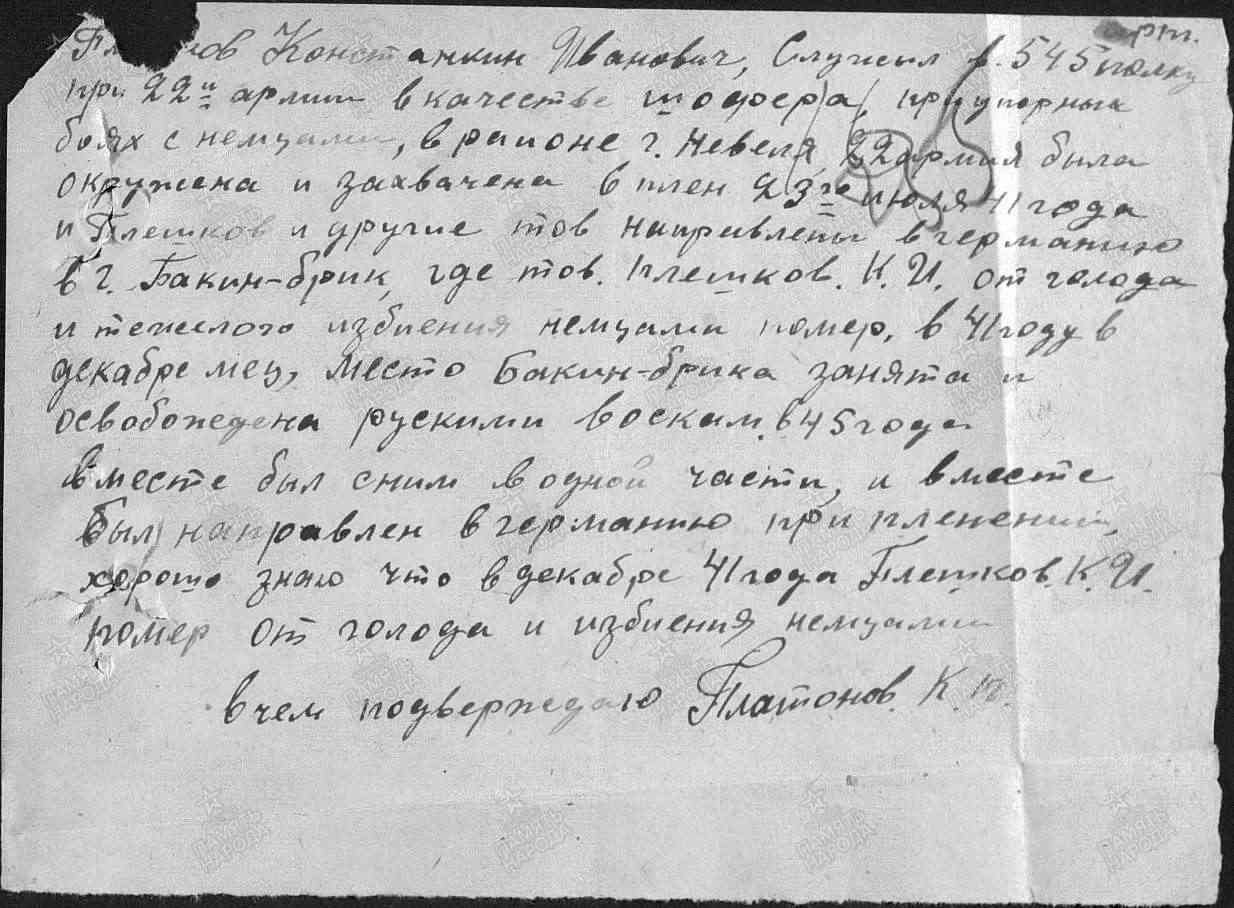 арт.
Константин Иванович, Служил в 545 полку
при 22й армии в качестве шофера, при упорных
боях с немцами, в районе г. Невеля 22 армия была
окружена и захвачена в плен 23го июля 41 года
и Плешков и другие тов направлены в германию
в г. Бакин-брик, где тов. плешков. К. И. от голода
и тежелого избиения немцами помер, в 41 году в
декабре мец, место Бакин-брика занята и
освобождена рускими воскам. в 45 года
вместе был сним в одной части, и вместе
был направлен в германию при пленении,
хорошо знаю что в декабре 41 года Плешков. К. И.
помер от голода и избиения немцами
в чем подверждаю Платонов. К. П.
ПАМЯТЬ НАРОДА